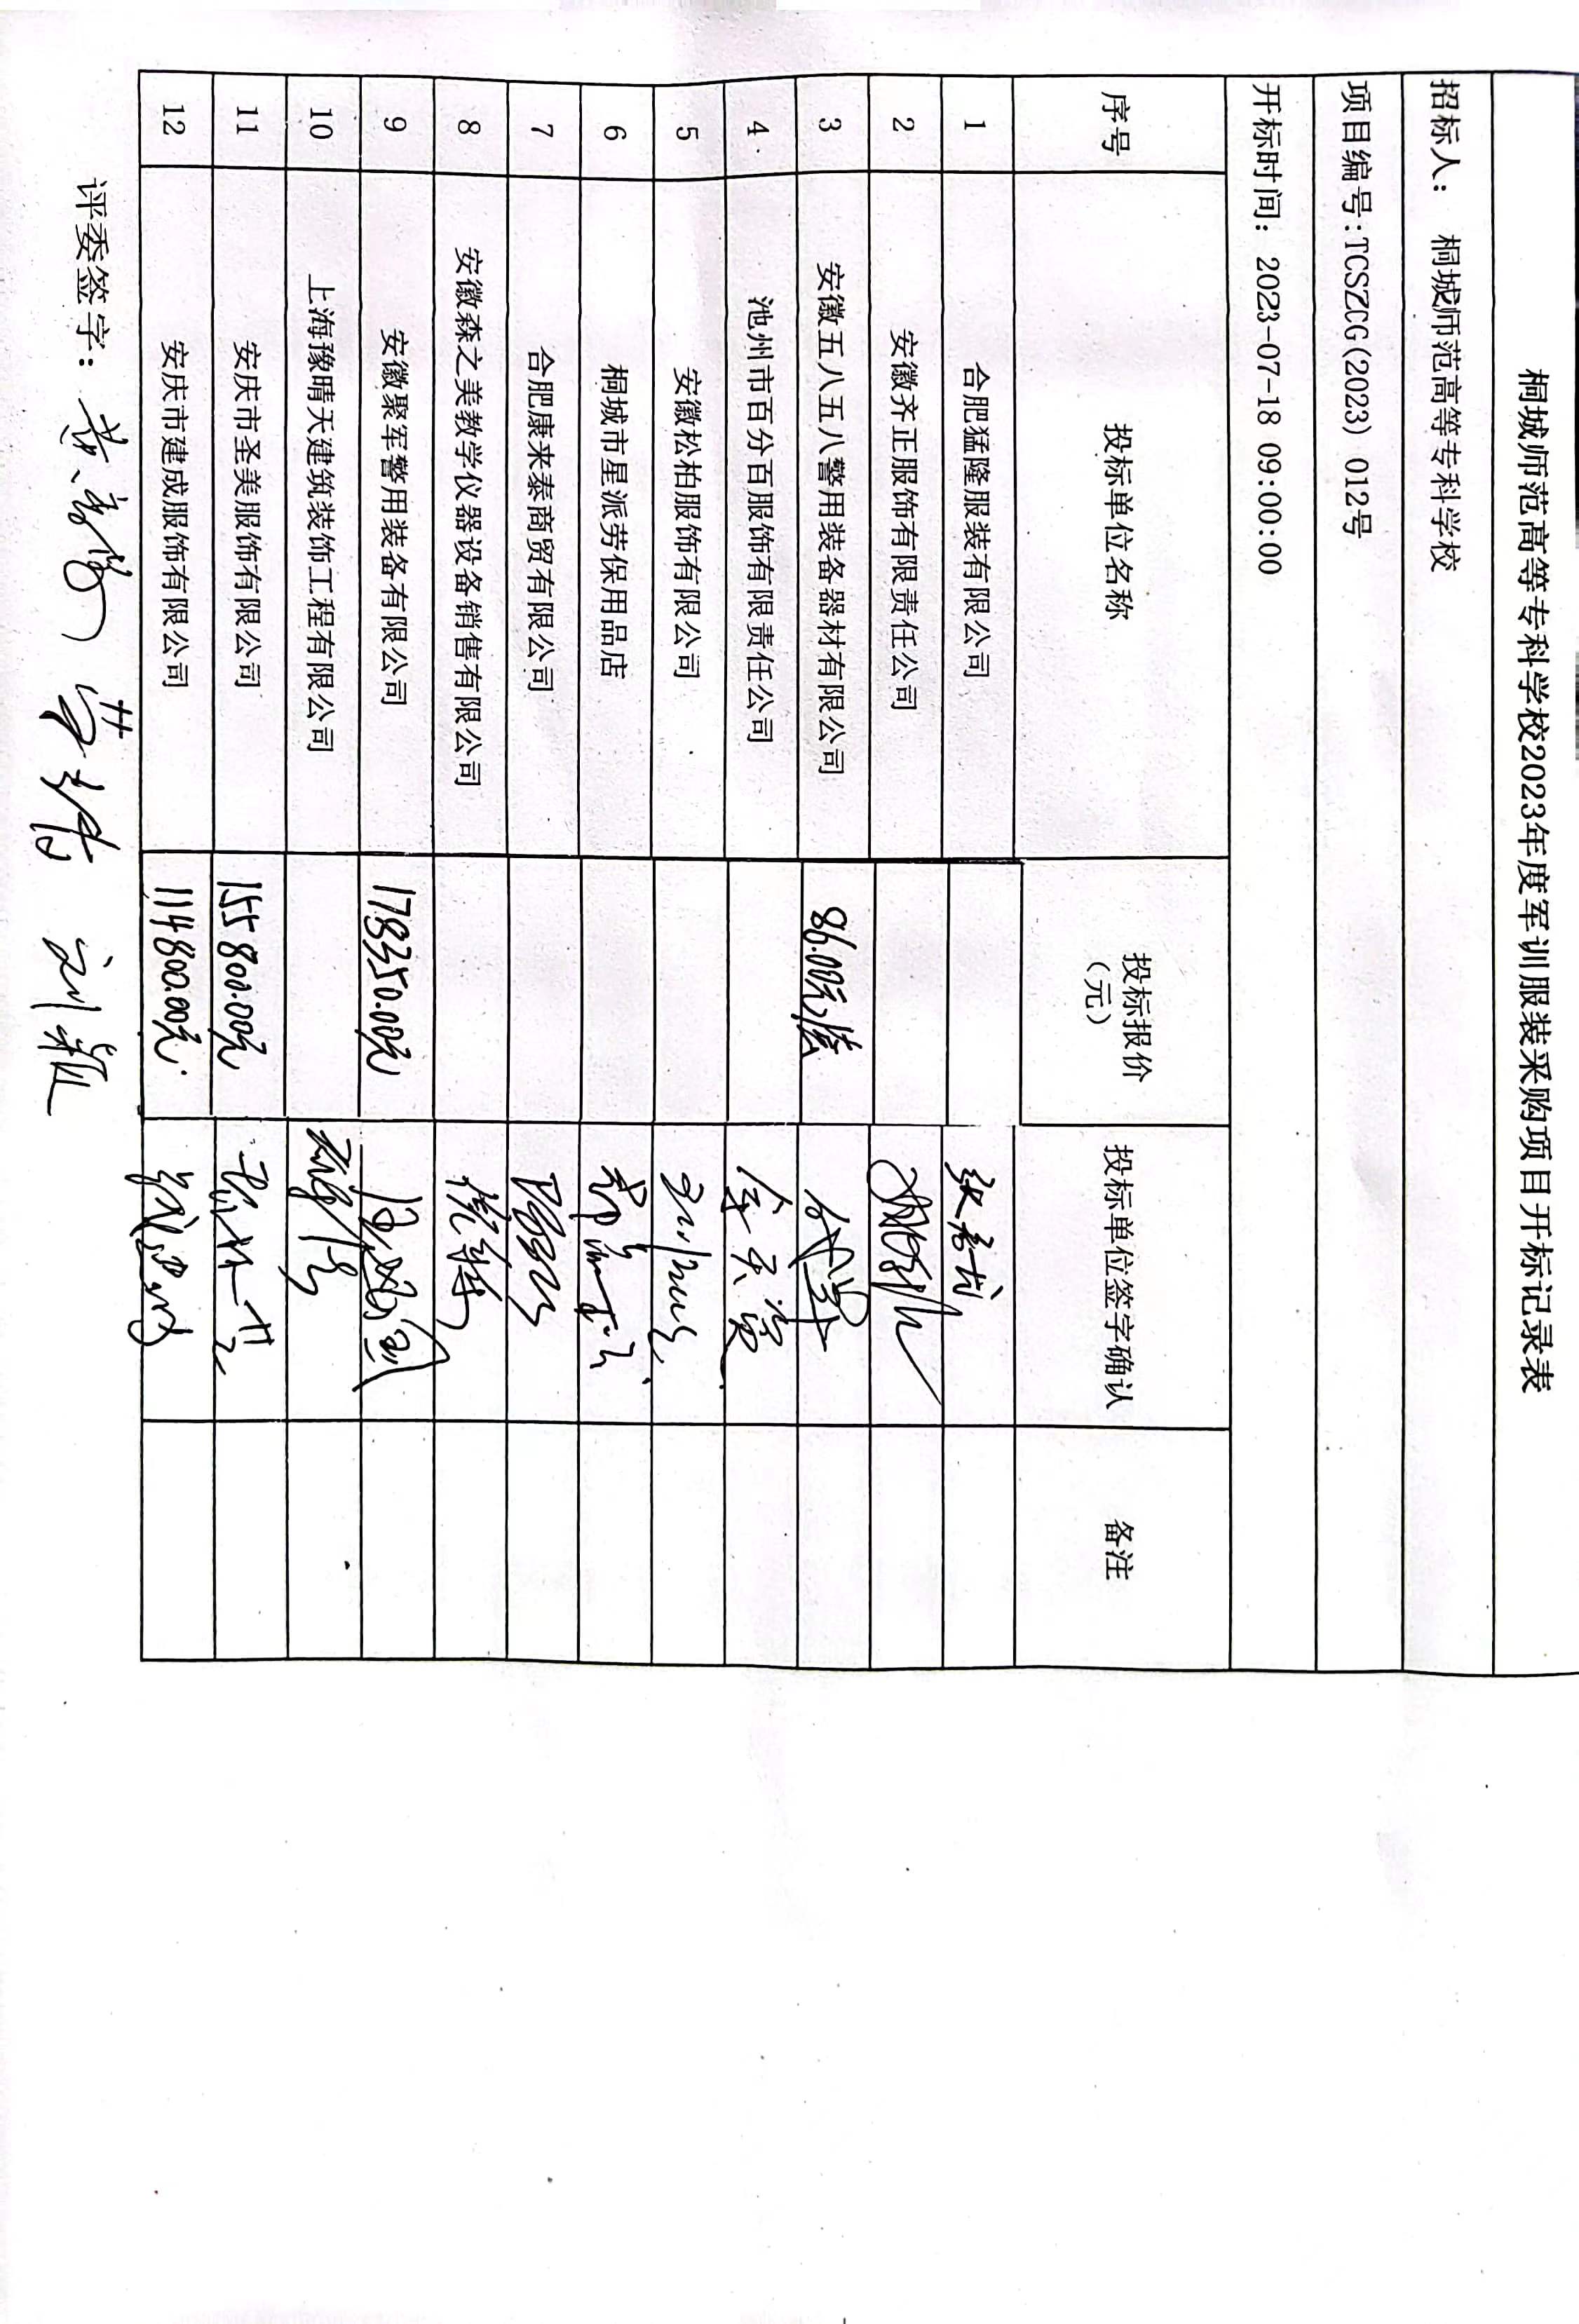 桐城师范高等专科学校2023年度军训服装采购项目开标记录表
招标人： 桐城师范高等专科学校
项目编号:TCSZCG(2023) 012号
开标时间： 2023-07-18 09:00:00
序号 投标单位名称 投标报价（元） 投标单位签字确认 备注
1 合肥猛隆服装有限公司
2 安徽齐正服饰有限责任公司
3 安徽五八五八警用装备器材有限公司 86.00元/套
4 池州市百分百服饰有限责任公司
5 安徽松柏服饰有限公司
6 桐城市星派劳保用品店
7 合肥康来泰商贸有限公司
8 安徽森之美教学仪器设备销售有限公司
9 安徽聚军警用装备有限公司 178350.00元
10 上海豫晴天建筑装饰工程有限公司
11 安庆市圣美服饰有限公司 155800.00元
12 安庆市建成服饰有限公司 114800.00元
评委签字： 刘颖